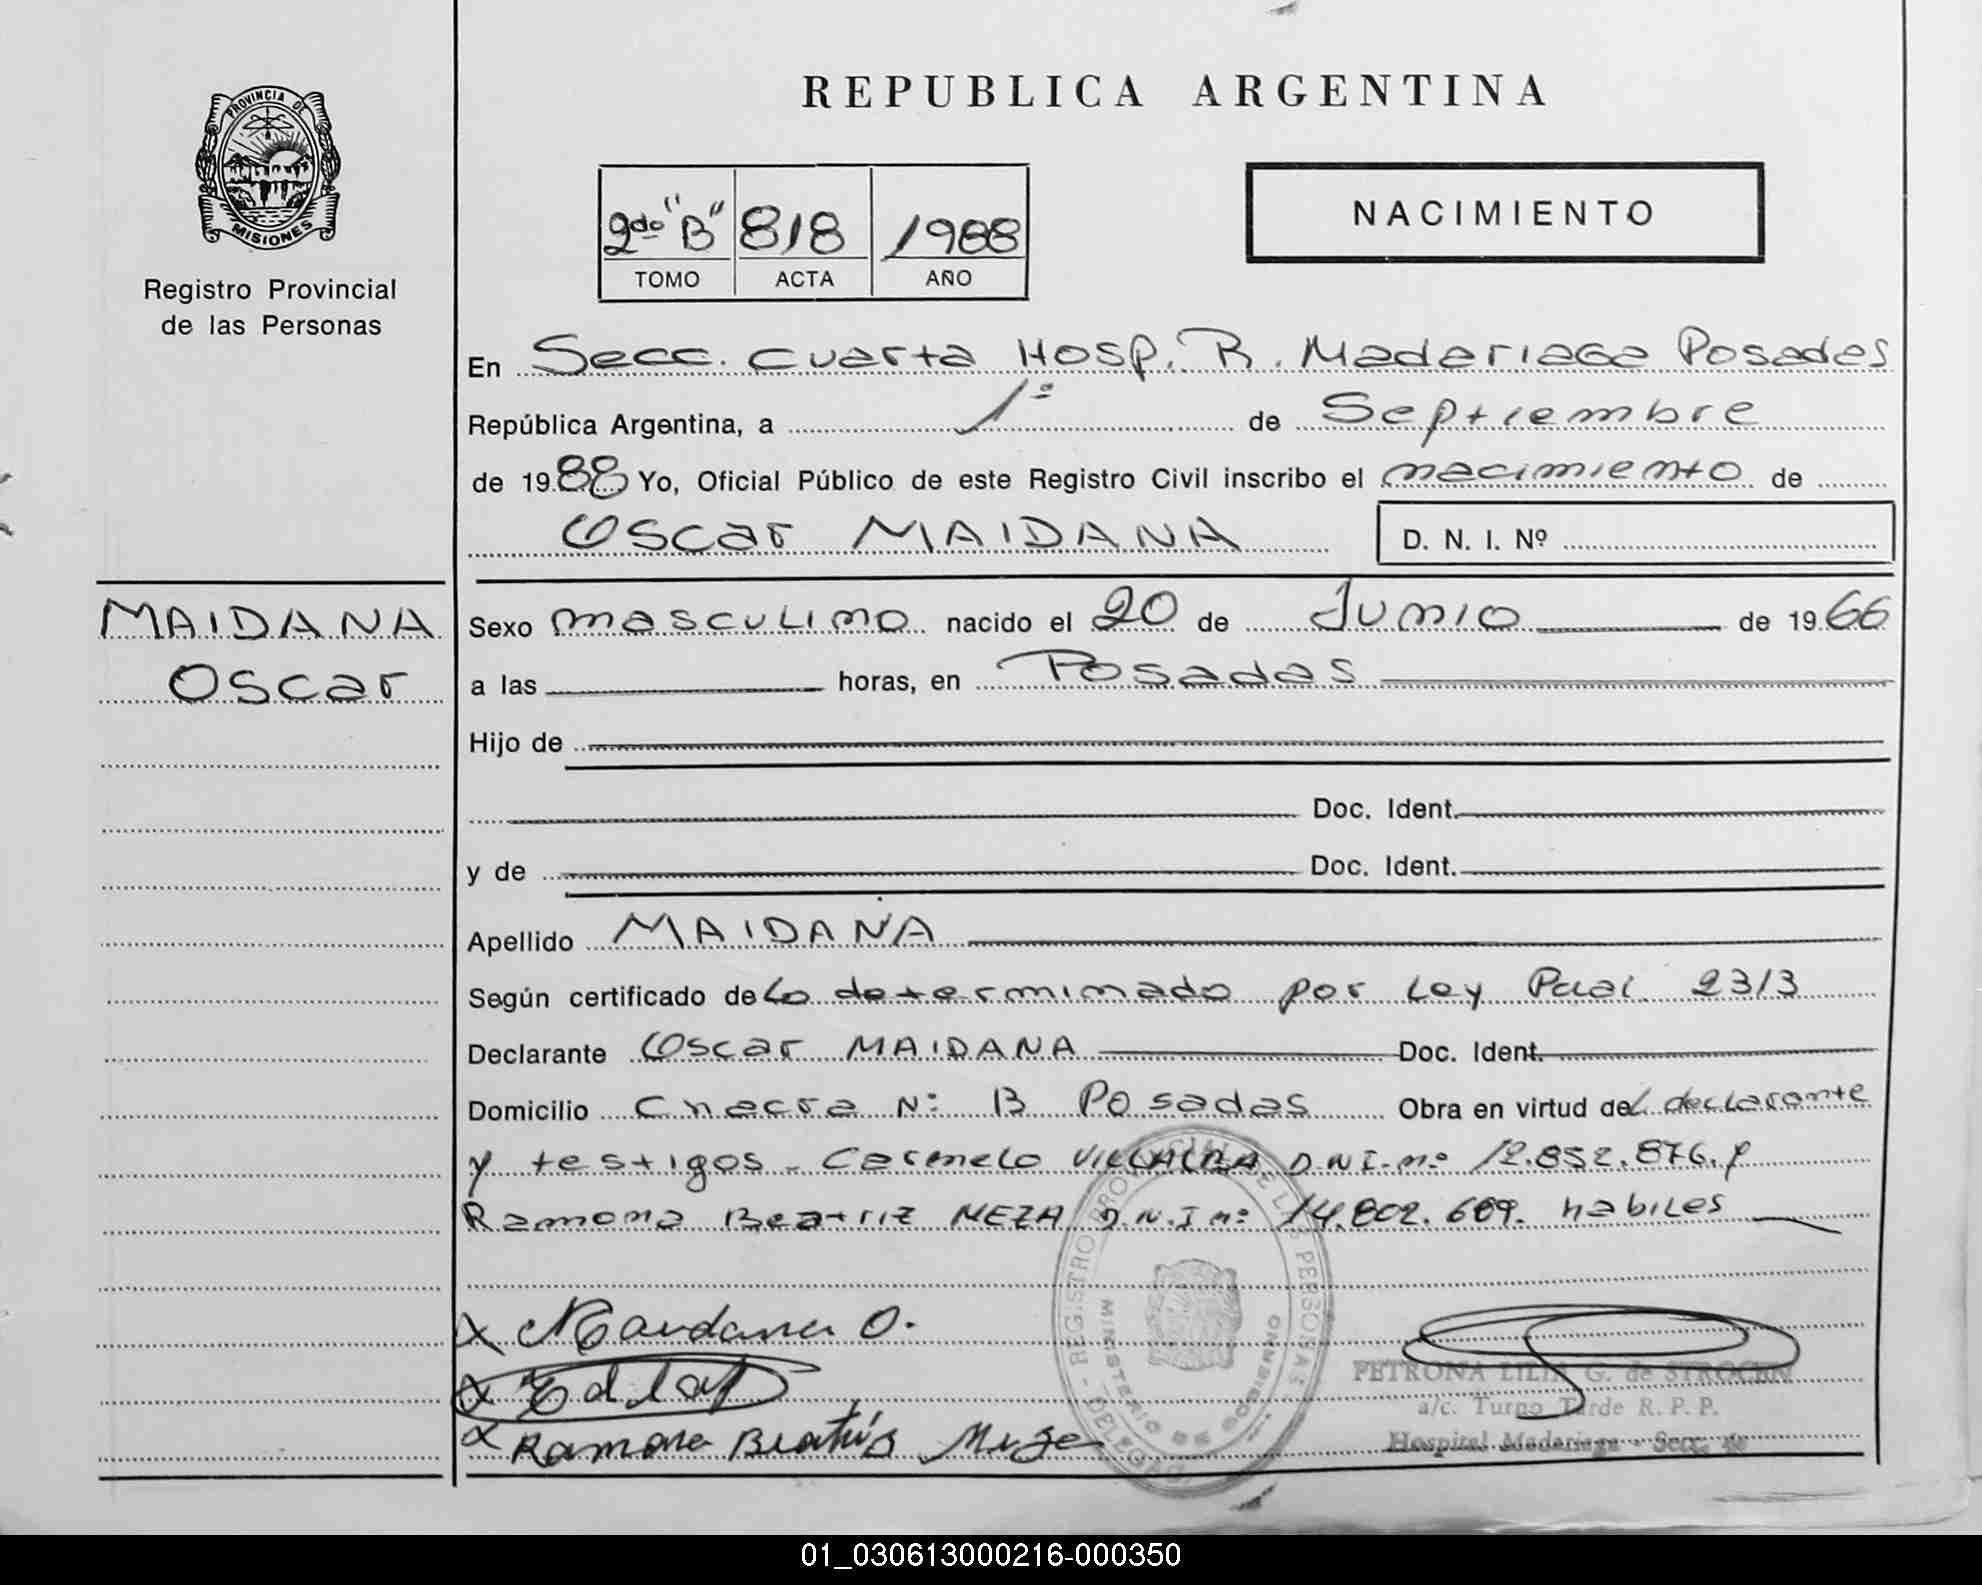 PROVINCIA DE
MISIONES
Registro Provincial
de las Personas
REPUBLICA ARGENTINA
2do "B" 818 1988
TOMO ACTA AÑO
NACIMIENTO
En Secc. Cuarta Hosp. R. Madariaga Posadas
República Argentina, a 1º de Septiembre
de 1988 Yo, Oficial Público de este Registro Civil inscribo el nacimiento de
Oscar MAIDANA D. N. I. Nº
MAIDANA
Oscar
Sexo masculino nacido el 20 de Junio de 1966
a las horas, en Posadas
Hijo de
Doc. Ident.
y de Doc. Ident.
Apellido MAIDANA
Según certificado de Lo determinado por Ley Pcial 2313
Declarante Oscar MAIDANA Doc. Ident.
Domicilio Chacra Nº B Posadas Obra en virtud del declarante
y testigos - Carmelo VILLALBA D.N.I. nº 12.852.876. y
Ramona Beatriz MEZA D.N.I nº 14.802.689. habiles
REGISTRO PROVINCIAL DE LAS PERSONAS - DELEGAC.
MINISTERIO DE GOBIERNO
X Maidana O.
X
X Ramona Beatriz Meza
PETRONA LILIA G. de
a/c. Turno Tarde R. P. P.
Hospital Madariaga - Secc. 4a
01_030613000216-000350